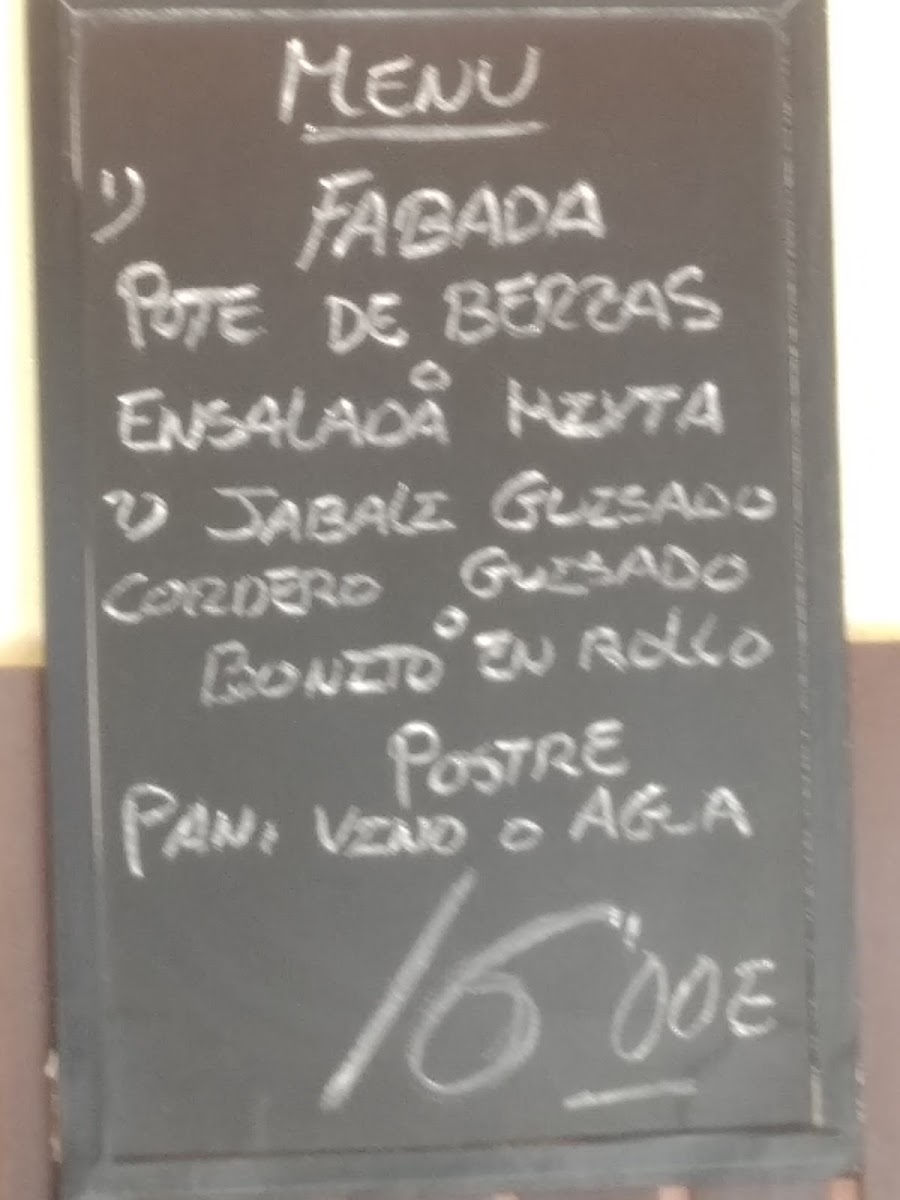 MENU
1) FABADA
POTE DE BERZAS
O
ENSALADA MIXTA
2) JABALI GUISADO
CORDERO GUISADO
O
BONITO EN ROLLO
POSTRE
PAN, VINO O AGUA
16'00E